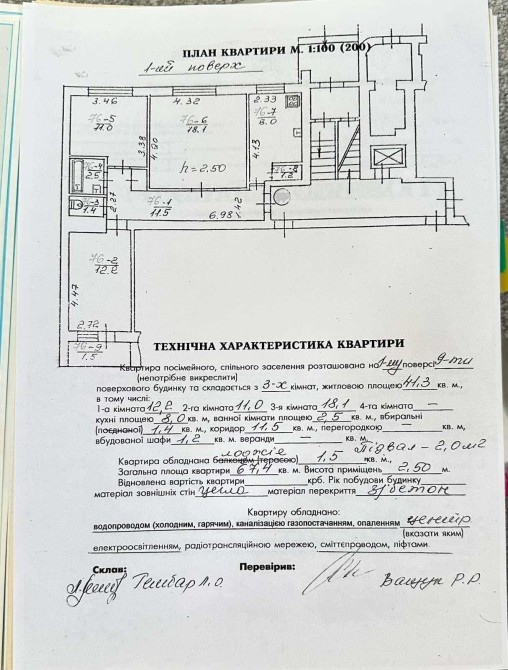 ПЛАН КВАРТИРИ М. 1:100 (200)
1-ий поверх
3.46
4.32
2.33
76-5
11.0
76-6
18.1
76-7
8.0
3.38
4.20
4.13
h=2.50
76-4
2.5
76-8
1.2
76-3
1.4
2.27
76-1
11.5
6.98
1.42
76-2
12.2
4.47
2.72
76-9
1.5
ТЕХНІЧНА ХАРАКТЕРИСТИКА КВАРТИРИ
Квартира посімейного, спільного заселення розташована на 1-му поверсі 9-ти
(непотрібне викреслити)
поверхового будинку та складається з 3-х кімнат, житловою площею 41,3 кв. м.,
в тому числі:
1-а кімната 12,2 2-га кімната 11,0 3-я кімната 18,1 4-та кімната —
кухні площею 8,0 кв. м, ванної кімнати площею 2,5 кв. м., вбиральні
(поєднаної) 1,4 кв. м., коридор 11,5 кв. м., перегородкою — кв. м.,
вбудованої шафи 1,2 кв. м. веранди — кв. м.
лоджіє Підвал – 2,0 м2
Квартира обладнана балконом (терасою) 1,5 кв. м.,
Загальна площа квартири 67,4 кв. м. Висота приміщень 2,50 м.
Відновлена вартість квартири крб. Рік побудови будинку
матеріал зовнішніх стін цегла матеріал перекриття з/бетон
Квартиру обладнано:
водопроводом (холодним, гарячим), каналізацією газопостачанням, опаленням центр.
(вказати яким)
електроосвітленням, радіотрансляційною мережею, сміттєпроводом, ліфтами.
Склав: Перевірив:
Гембар Л.О. Ващук Р.Р.